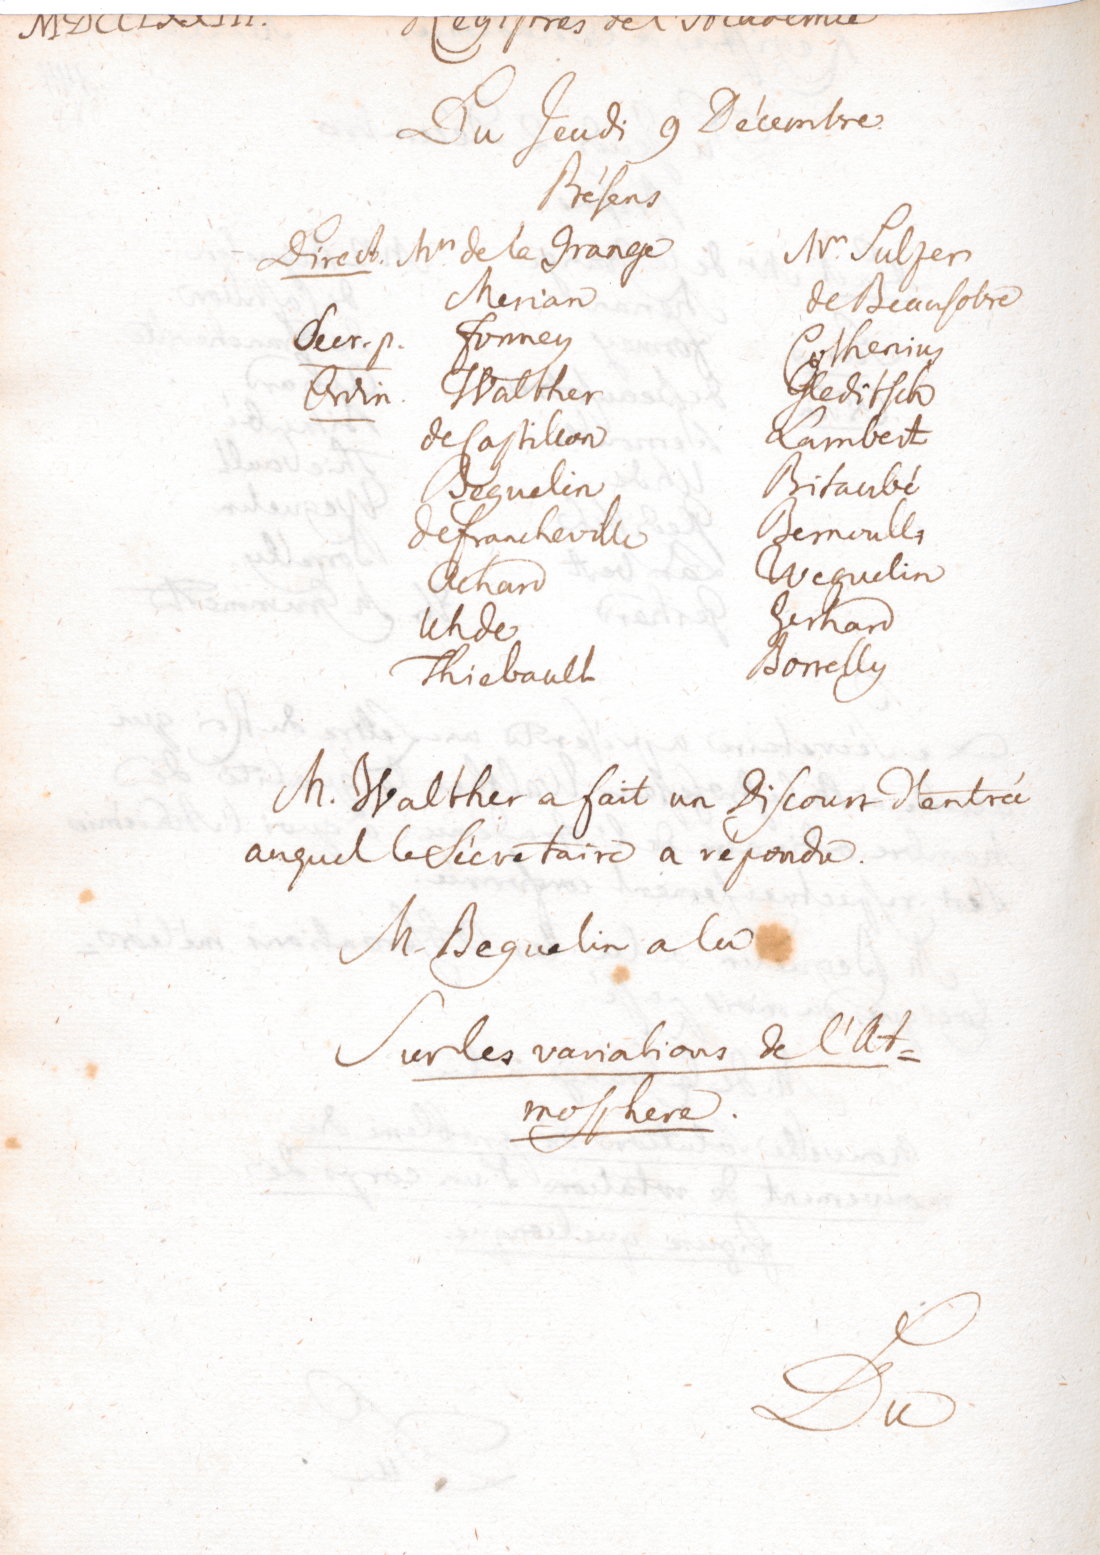 MDCCLXXIII. Registres de l'Academie
Du Jeudi 9 Décembre
Présens
Direct. Mrs de la Grange
Merian
Secr. p. Formey
Ordin. Walther
de Castillon
Beguelin
de Francheville
Achard
Uhde
Thiebault
Mrs Sulzer
de Beausobre
Cothenius
Gleditsch
Lambert
Bitaubé
Bernoulli
Weguelin
Gerhard
Borrelly
M. Walther a fait un Discours d'entrée
auquel le Sécretaire a répondu.
M. Beguelin a lu
Sur les variations de l'At=
mosphere.
Du